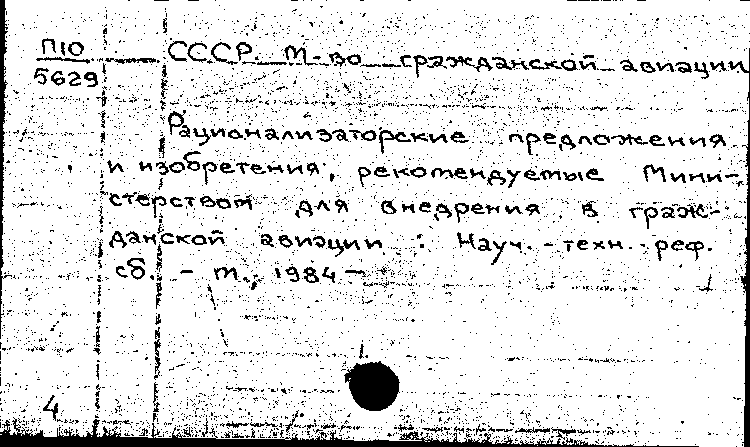 П10 СССР. М-во гражданской авиации
5629
Рационализаторские предложения
и изобретения, рекомендуемые Мини-
стерством для внедрения в граж-
данской авиации : Науч. - техн. реф.
сб. - М., 1984 -
4